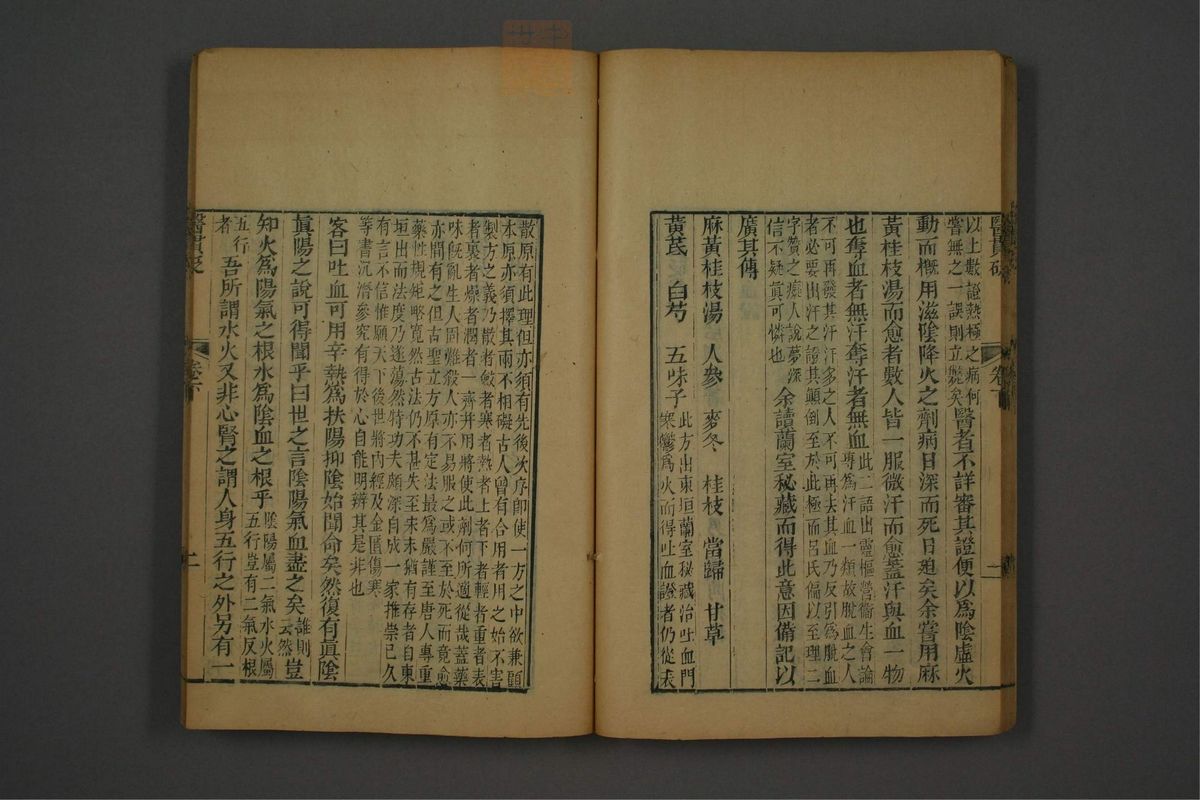 醫貫砭 卷下 二
以上數證熱極之病何
嘗無之一誤則立斃矣
醫者不詳審其證便以爲陰虛火
動而概用滋陰降火之劑病日深而死日迫矣余嘗用麻
黃桂枝湯而愈者數人皆一服微汗而愈蓋汗與血一物
也奪血者無汗奪汗者無血
此二語出靈樞營衞生會論
專爲汗血一類故脫血之人
不可再發其汗汗多之人不可再去其血乃反引爲脫血
者必要出汗之證其顛倒至於此極而呂氏偏以至理二
字贊之癡人說夢深
信不疑眞可憐也
余讀蘭室秘藏而得此意因備記以
廣其傳
麻黃桂枝湯 人參 麥冬 桂枝 當歸 甘草
黃芪 白芍 五味子
此方出東垣蘭室秘藏治吐血門
寒鬱爲火而得吐血證者仍從表
散原有此理但亦須有先後次序即使一方之中欲兼顧
本原亦須擇其兩不相礙古人曾有合用者用之始不害
製方之義乃散者斂者寒者熱者上者下者輕者重者表
者裏者燥者潤者一齊并用將使此劑何所適從哉蓋藥
味旣亂生人固難殺人亦不易服之或不至於死而竟愈
亦間有之但古聖立方原有定法最爲嚴謹至唐人專重
藥性規矩略寬然古法仍不甚失至宋末猶有存者自東
垣出而法度乃遂蕩然特功夫頗深自成一家推崇已久
有言不信惟願天下後世將內經及金匱傷寒
等書沉潛參究有得於心自能明辨其是非也
客曰吐血可用辛熱爲扶陽抑陰始聞命矣然復有眞陰
眞陽之說可得聞乎曰世之言陰陽氣血盡之矣
誰則
云然
豈
知火爲陽氣之根水爲陰血之根乎
陰陽屬二氣水火屬
五行豈有二氣反根
五行
者
吾所謂水火又非心腎之謂人身五行之外另有一
醫貫砭 卷下 二